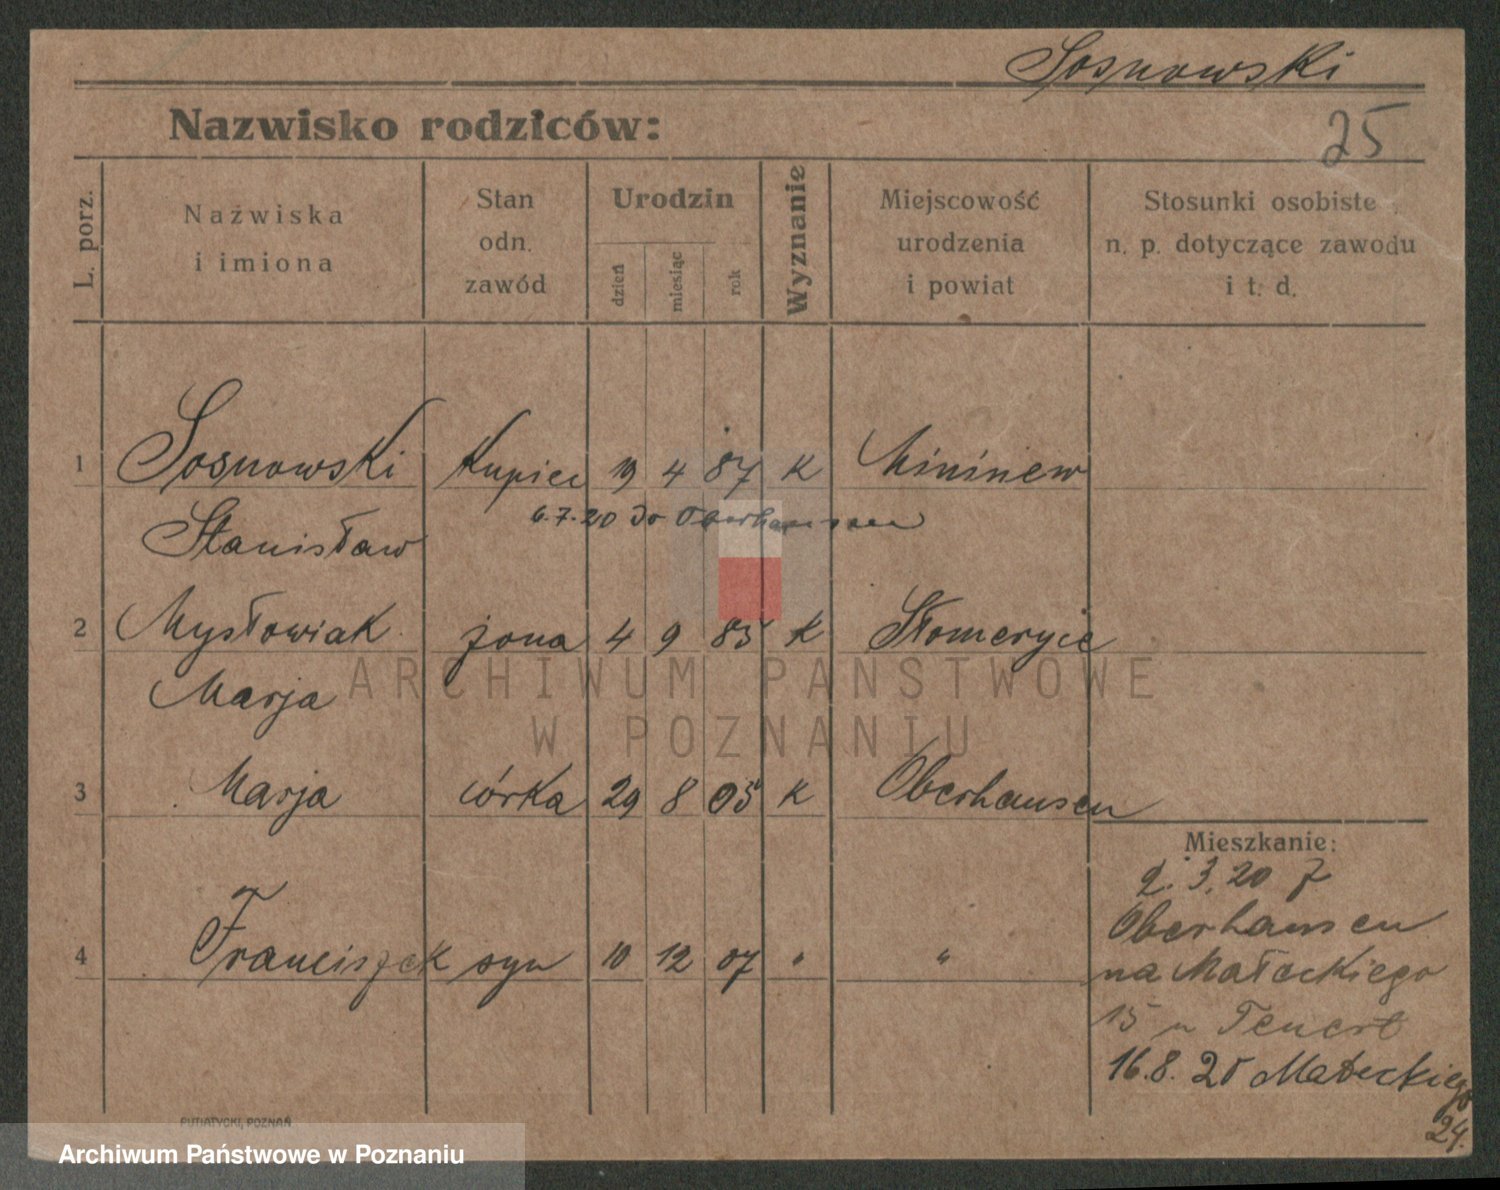 Sosnowski
25
Nazwisko rodziców:
L. porz.
Nazwiska i imiona
Stan odn. zawód
Urodzin
dzień
miesiąc
rok
Wyznanie
Miejscowość urodzenia i powiat
Stosunki osobiste n. p. dotyczące zawodu i t. d.
1 Sosnowski Kupiec 19 4 87 K Mininiew
6.7.20 do Oberhausen
Stanisław
2 Mysłowiak żona 4 9 85 K
Marja
3 Marja córka 29 8 05 K Oberhausen
4 Franciszek syn 10 12 07 " "
Mieszkanie:
2.3.20 z
Oberhausen
na Małeckiego
15 u Tenert
16.8.20 Małeckiego
24.
PUTIATYCKI, POZNAŃ
ARCHIWUM PAŃSTWOWE
W POZNANIU
Archiwum Państwowe w Poznaniu